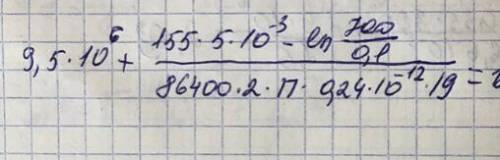 9,5·10⁶ + (155·5·10⁻³ - ln 700/0,1) / (86400·2·П·0,24·10⁻¹²·19) =